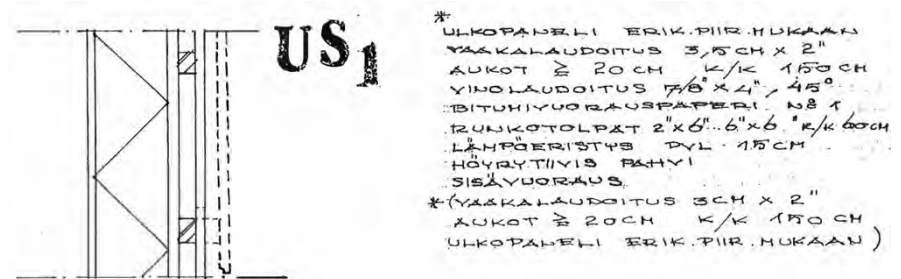 US1
*
ULKOPANELI ERIK.PIIR.MUKAAN
VAAKALAUDOITUS 3,5CM X 2"
AUKOT ≥ 20CM K/K 150 CM
VINOLAUDOITUS 7/8" X 4", 45°
BITUMIVUORAUSPAPERI N:o 1
RUNKOTOLPAT 2"X6"..6"X6" K/K 60CM
LÄMPÖERISTYS PVL 15CM
HÖYRYTIIVIS PAHVI
SISÄVUORAUS
*(VAAKALAUDOITUS 3CM X 2"
AUKOT ≥ 20CM K/K 150 CM
ULKOPANELI ERIK.PIIR.MUKAAN)